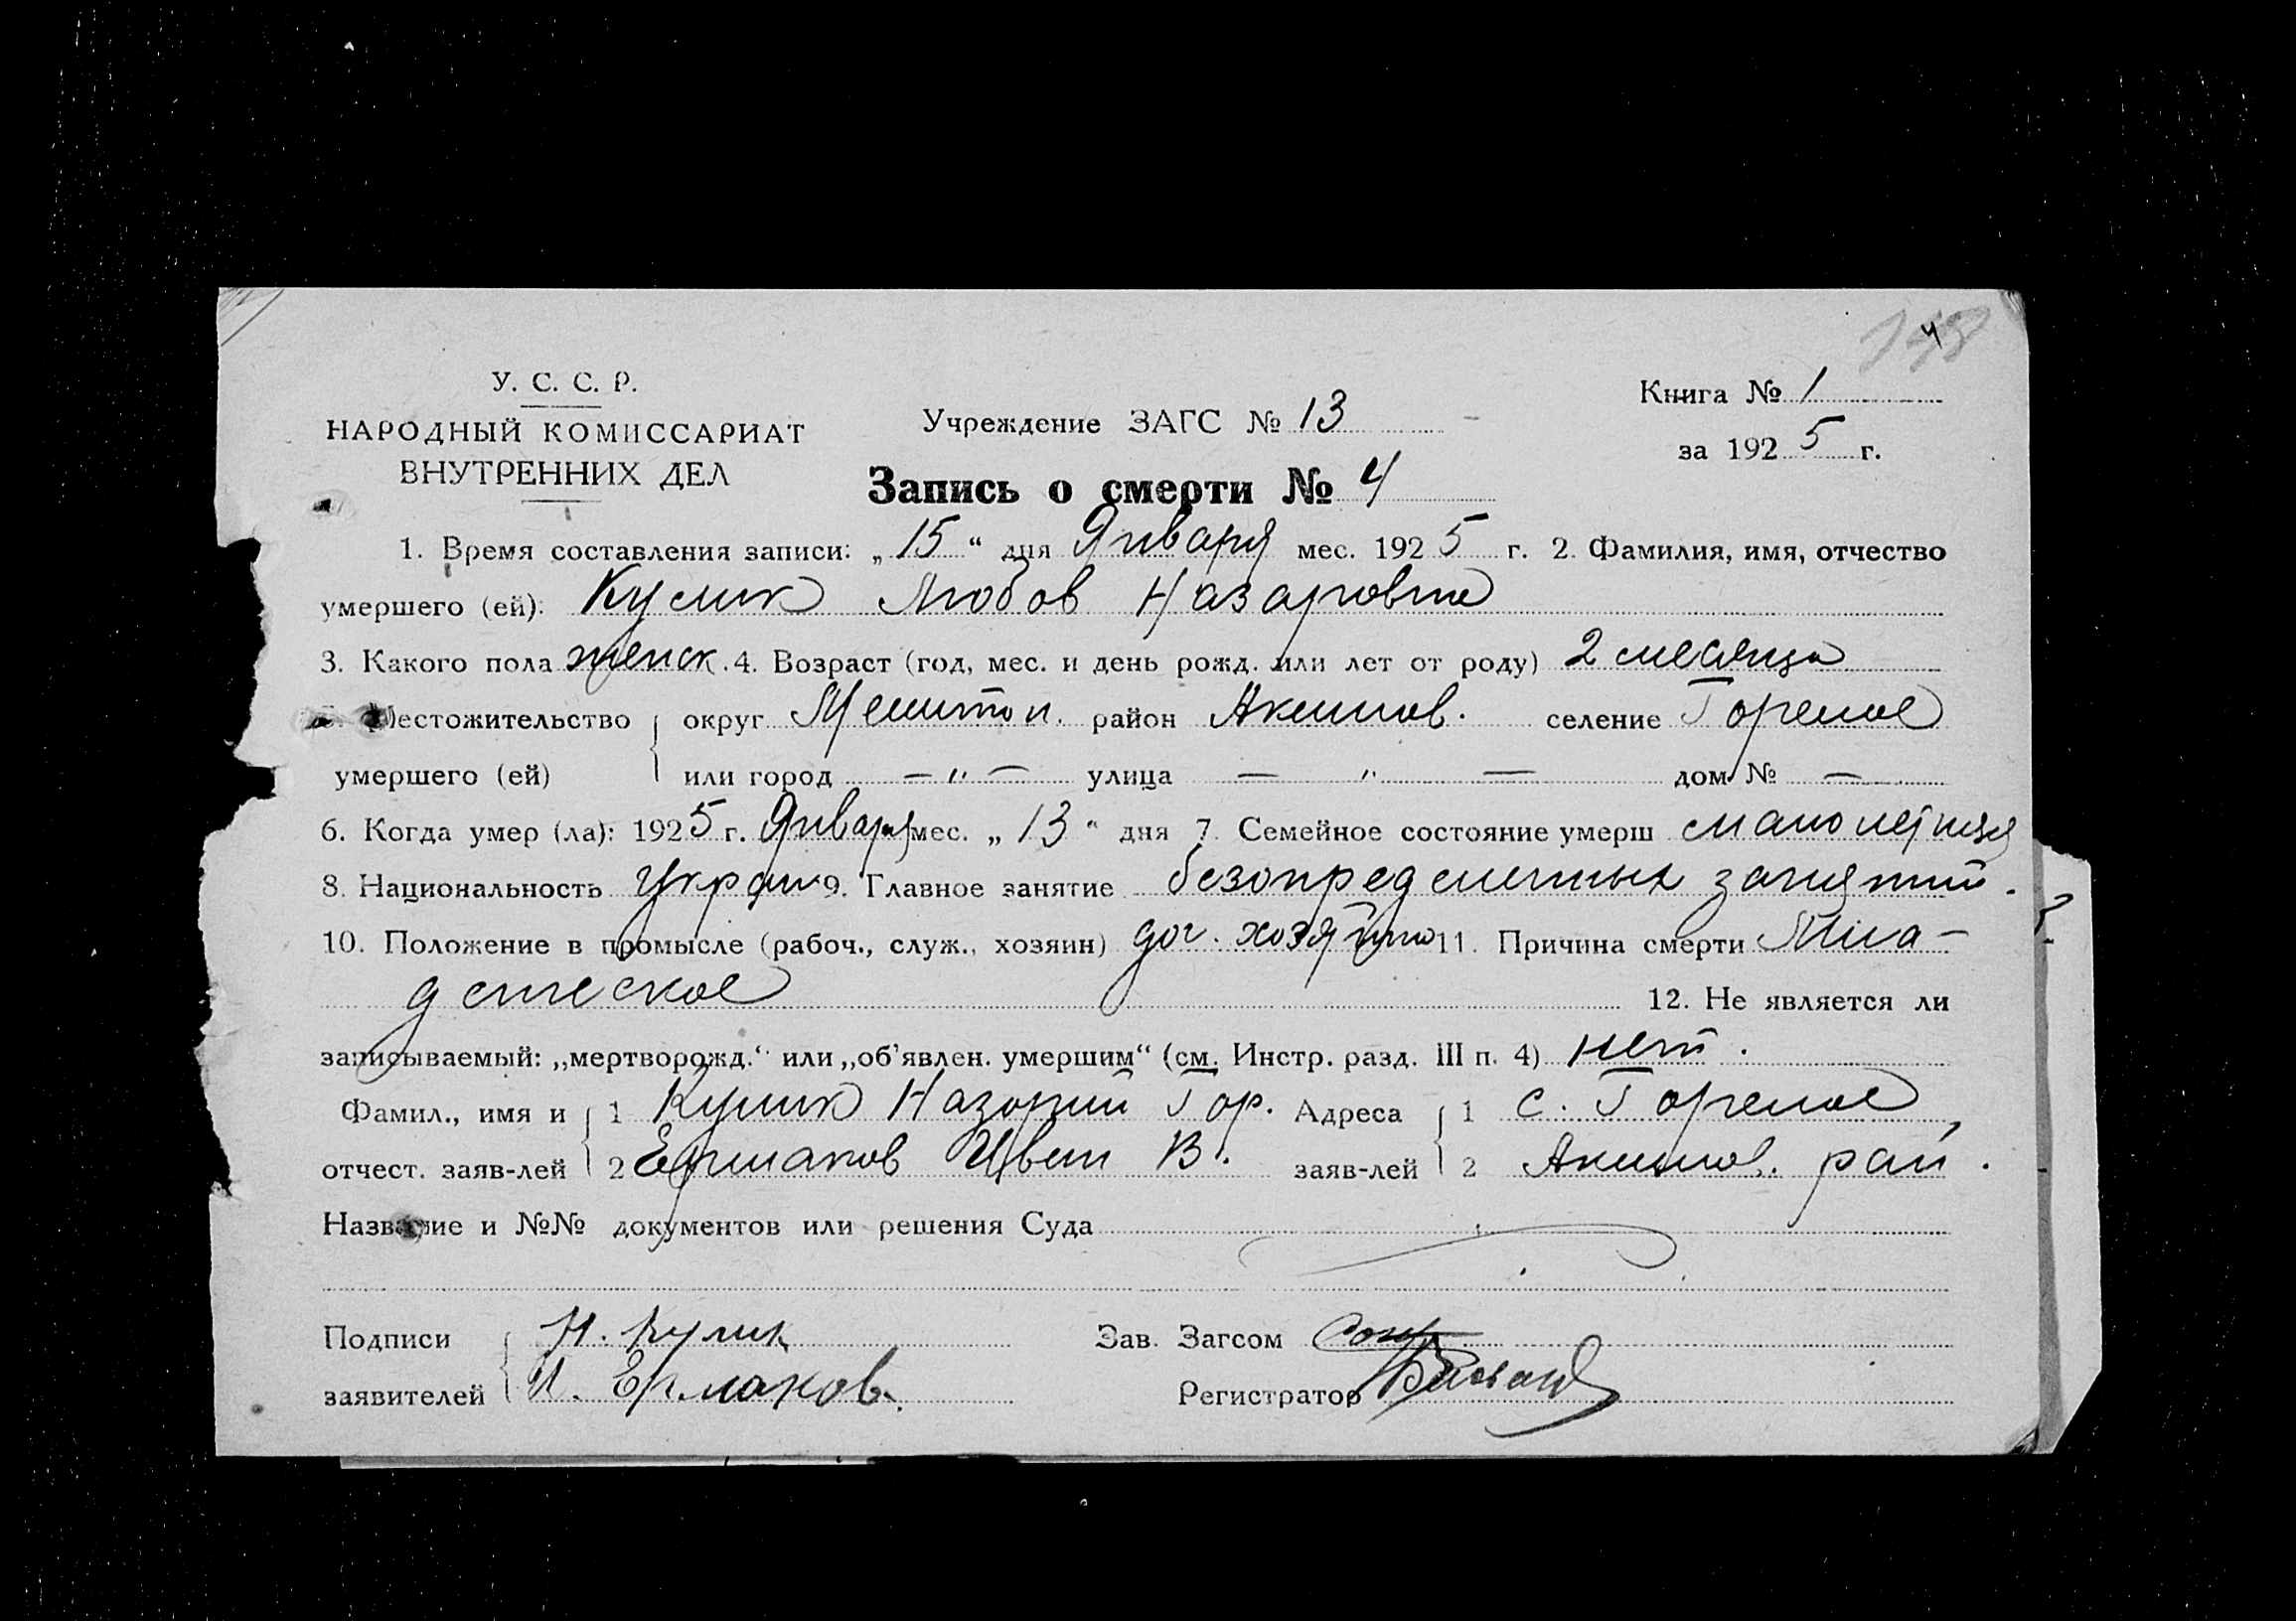 148
4
У. С. С. Р.
НАРОДНЫЙ КОМИССАРИАТ
ВНУТРЕННИХ ДЕЛ
Учреждение ЗАГС № 13
Книга № 1
за 1925 г.
Запись о смерти № 4
1. Время составления записи: „15“ дня Января мес. 1925 г. 2. Фамилия, имя, отчество
умершего (ей): Кулик Любов Назаровна
3. Какого пола женск. 4. Возраст (год, мес. и день рожд. или лет от роду) 2 месяца
5. Местожительство округ Мелитоп. район Акимов. селение Горелое
умершего (ей) или город — „ — улица — „ — дом № —
6. Когда умер (ла): 1925 г. Января мес. „13“ дня 7. Семейное состояние умерш малолетняя
8. Национальность Украин 9. Главное занятие безопределенных занятий.
10. Положение в промысле (рабоч., служ., хозяин) хозяина 11. Причина смерти
детское 12. Не является ли
записываемый: „мертворожд.“ или „об'явлен. умершим“ (см. Инстр. разд. III п. 4) нет.
Фамил., имя и 1 Кулик Назарий Гор. Адреса 1 с. Горелое,
отчест. заяв-лей 2 Ермаков В. заяв-лей 2 Акимов. рай.
Название и №№ документов или решения Суда
Подписи Н. Кулик Зав. Загсом
заявителей И. Ермаков. Регистратор